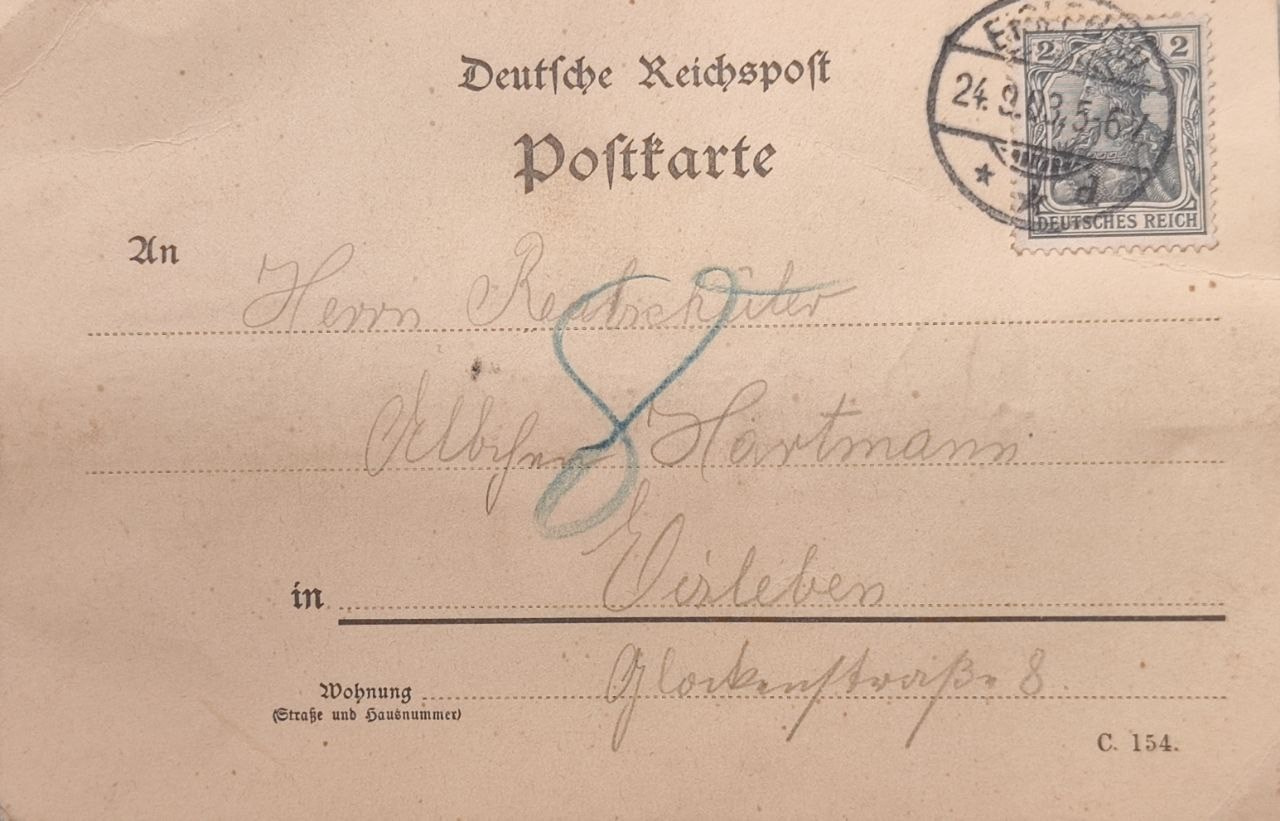 Deutsche Reichspost
Postkarte
EISLEBEN
24. 9. 03. 5-6
2 2
DEUTSCHES REICH
An
Herrn
Hartmann
8
in
Eisleben
Wohnung
Glockenstraße 8.
(Straße und Hausnummer)
C. 154.